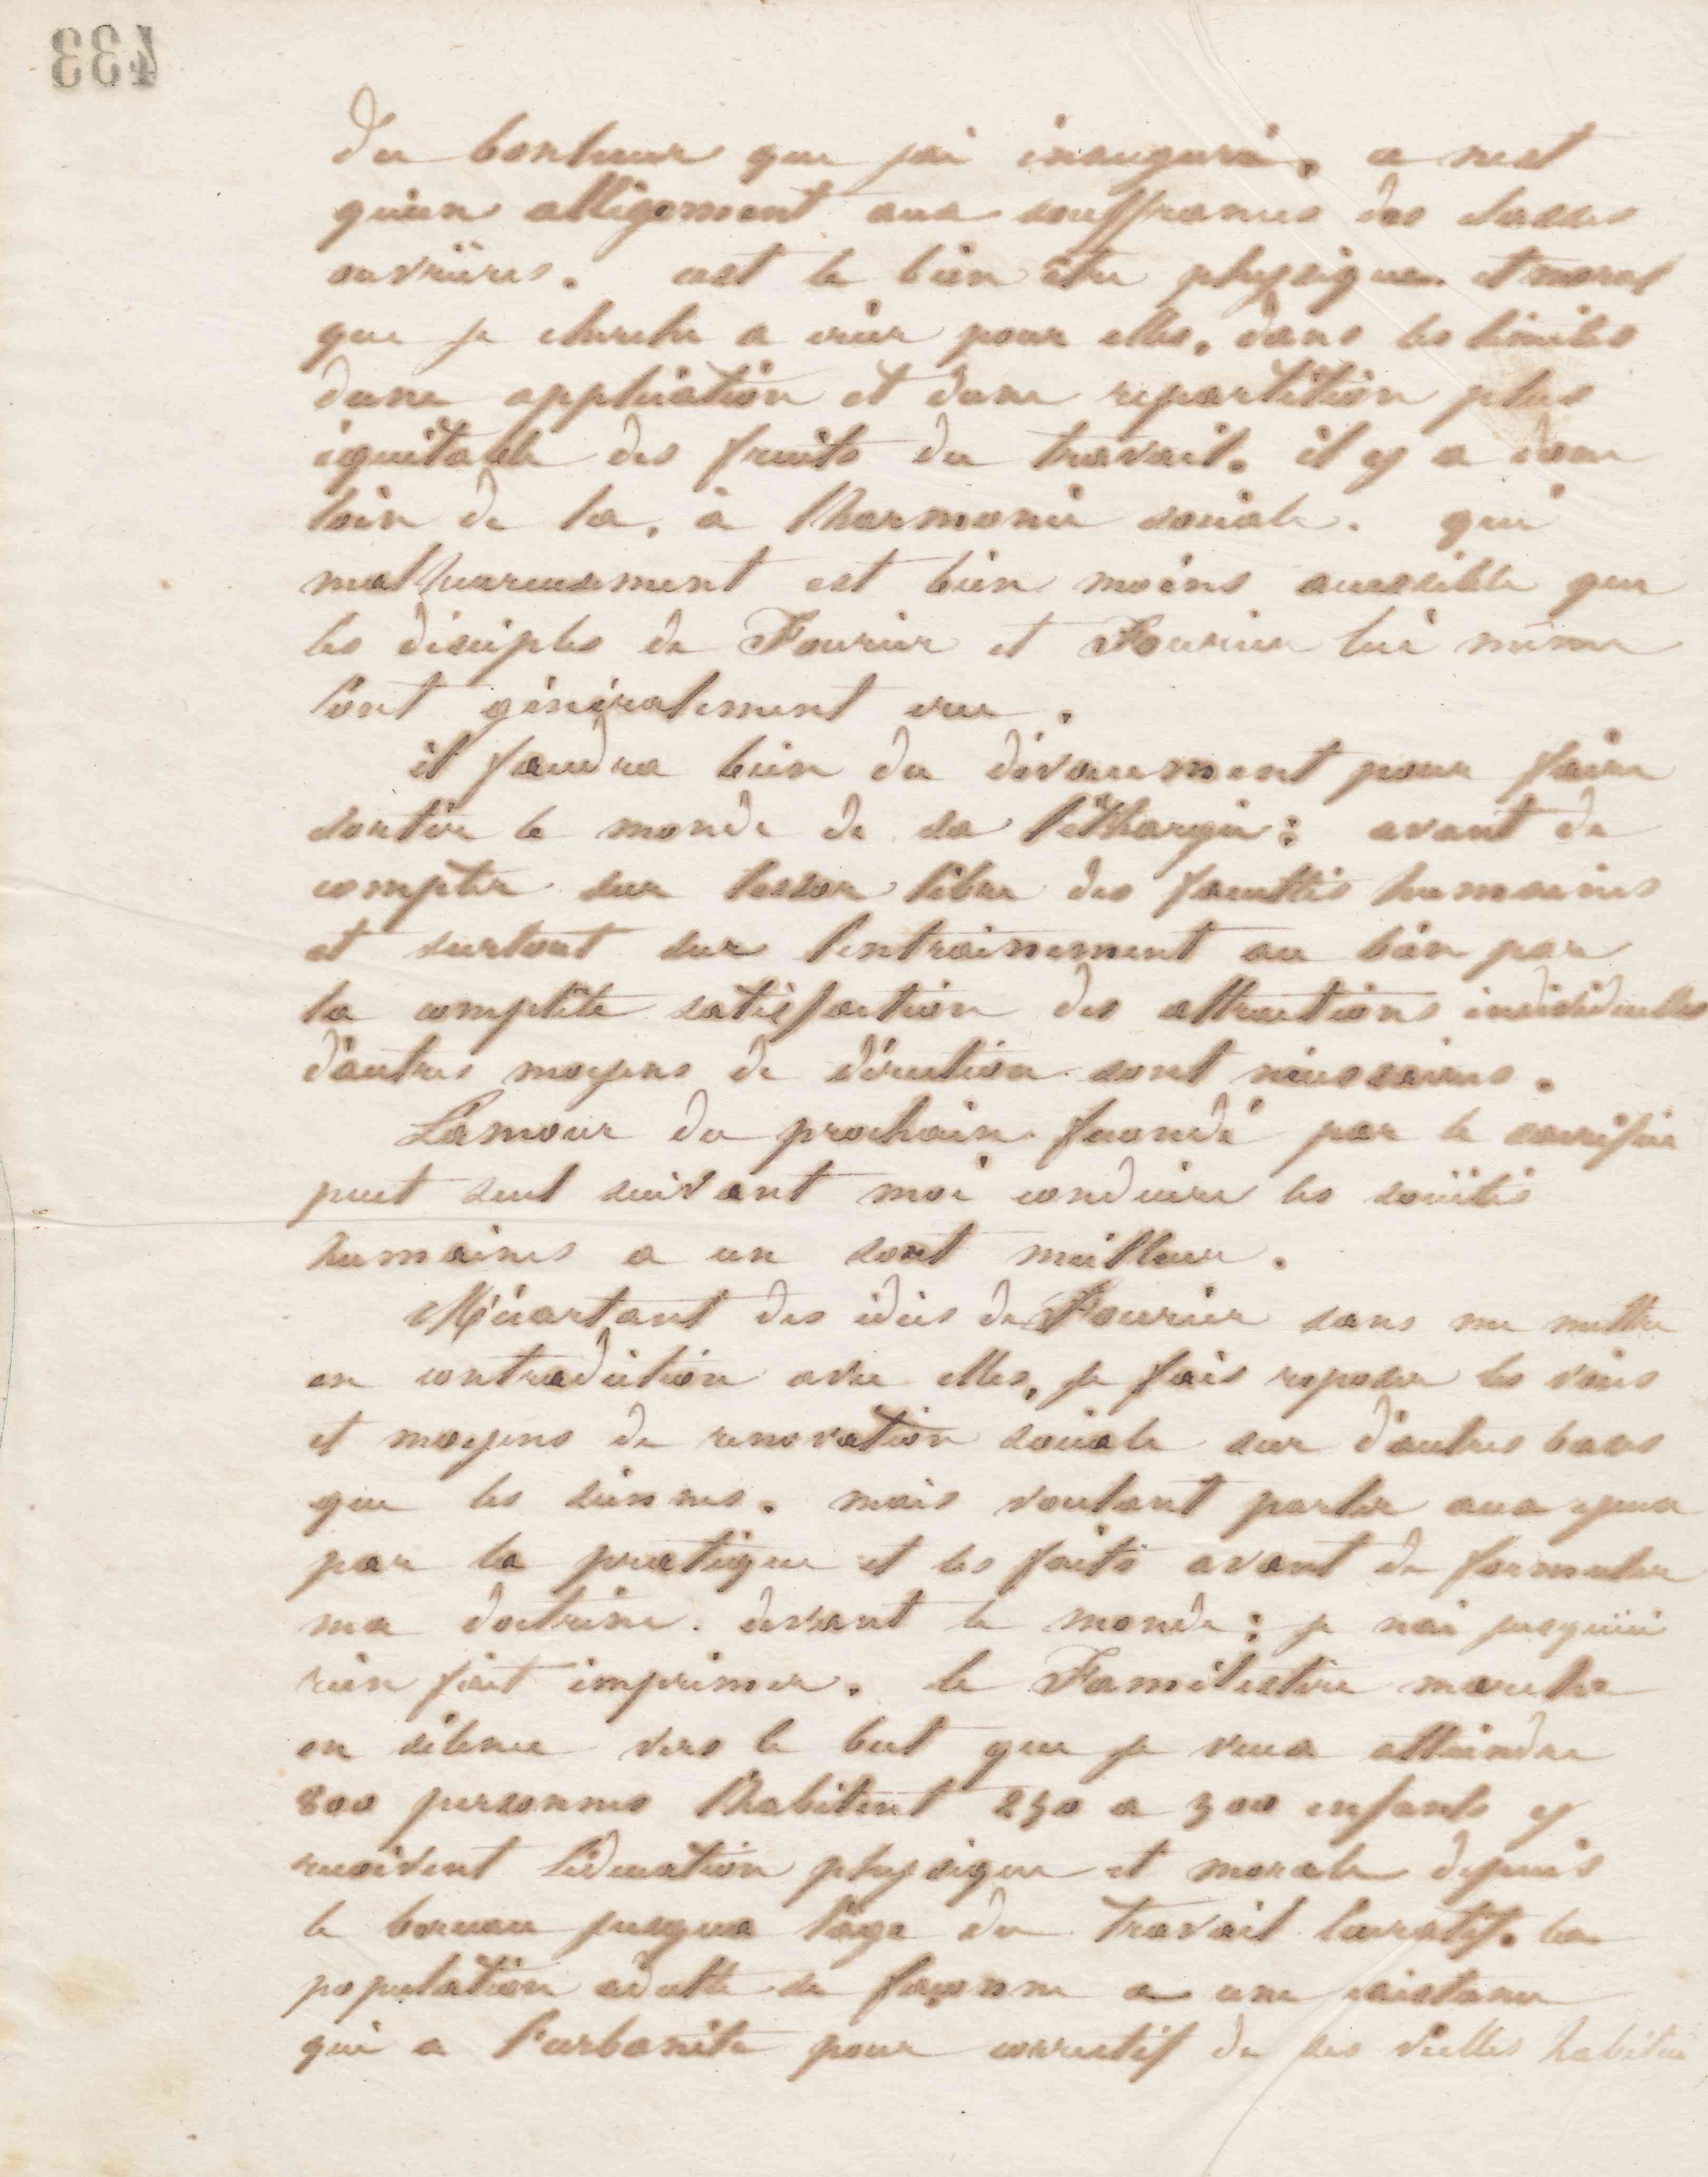 433
du bonheur que jai inauguré, ce nest
quun allégement aux souffrances des classes
ouvrières. cest le bien être physique et moral
que je cherche a créer pour elles, dans les limites
dune application et dune repartition plus
équitable des fruits du travail. il y a donc
loin de la, à lharmonie sociale. qui
malheureusement est bien moins accessible que
les disciples de Fourier et Fourier lui même
lont généralement cru.
il faudra bien du dévouement pour faire
sortir le monde de sa léthargie: avant de
compter sur lessor libre des facultés humaines
et surtout sur lentrainement au bien par
la complète satisfaction des attractions individuelles
dautres moyens de direction sont nécessaires.
Lamour du prochain fécondé par le sacrifice
peut seul suivant moi conduire les sociétés
humaines a un sort meilleur.
M'écartant des idées de Fourier sans me mettre
en contradiction avec elles, je fais reposer les voies
et moyens de renovation sociale sur dautres bases
que les siennes. mais voulant parler aux yeux
par la pratique et les faits avant de formuler
ma doctrine devant le monde: je nai jusquici
rien fait imprimer. le Familistère marche
en silence vers le but que je veux atteindre
800 personnes lhabitent 250 a 300 enfants y
recoivent léducation physique et morale depuis
le berceau jusqua lage du travail lucratif. la
population adulte se façonne a une existance
qui a l'urbanité pour correctif de ses vielles habitu